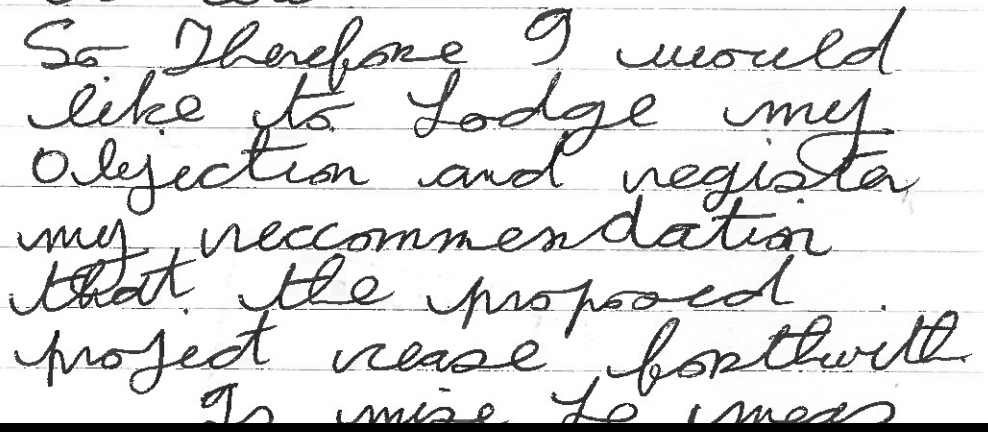 So Therefore I would
like to Lodge my
Objection and register
my reccommendation
that the proposed
project cease forthwith
Is mise Le meas